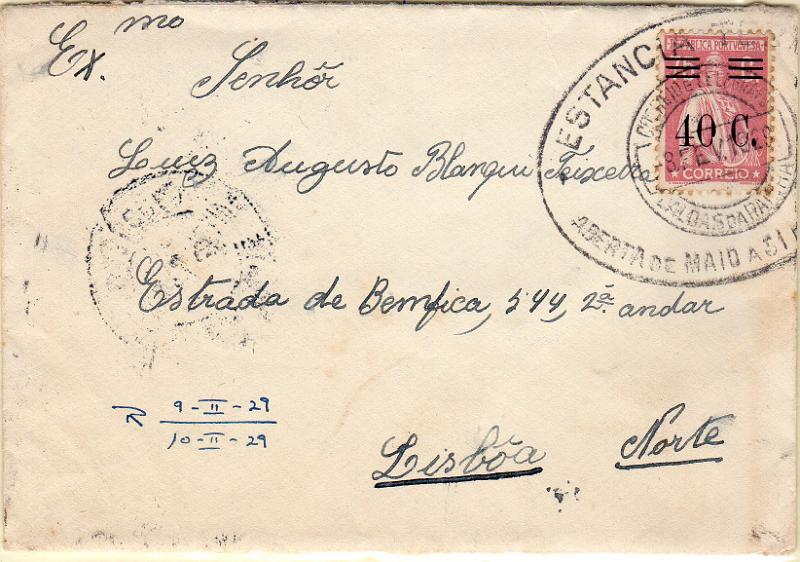 Ex.mo
Senhôr
Luiz Augusto Blanqui Teixeira
Estrada de Bemfica, 544, 2º andar
Lisbôa Norte
9-II-29
10-II-29
REPUBLICA PORTUGUESA
40 C.
CORREIO
ESTANCIA
CALDAS DA RAINHA
ABERTA DE MAIO A 31